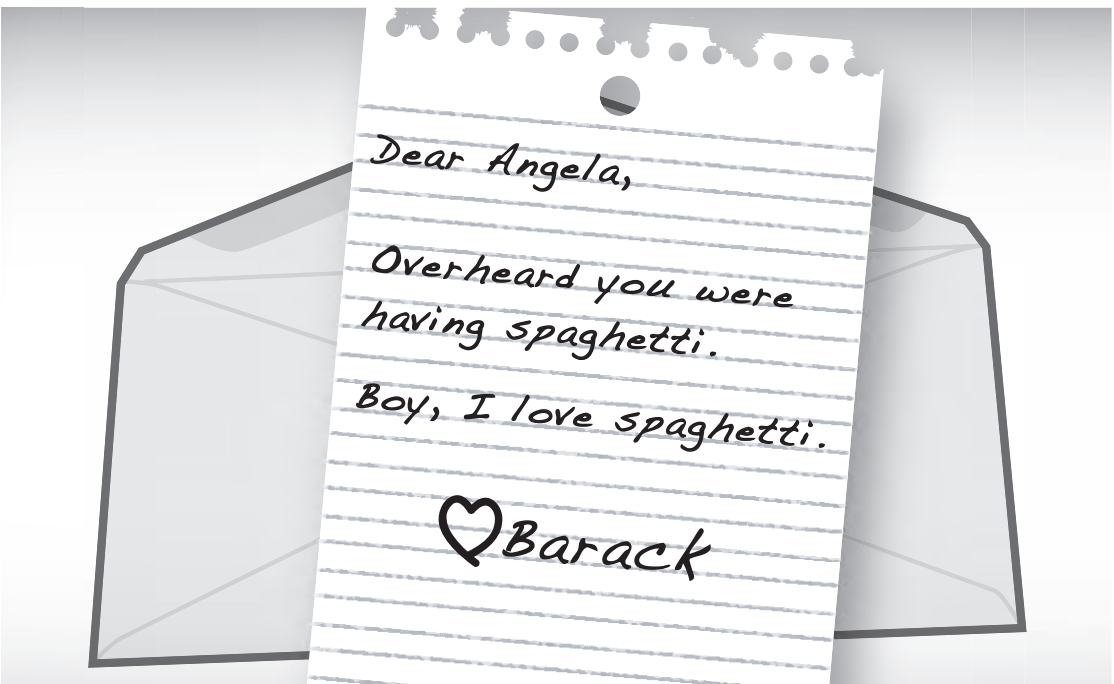 Dear Angela,
Overheard you were
having spaghetti.
Boy, I love spaghetti.
♡Barack